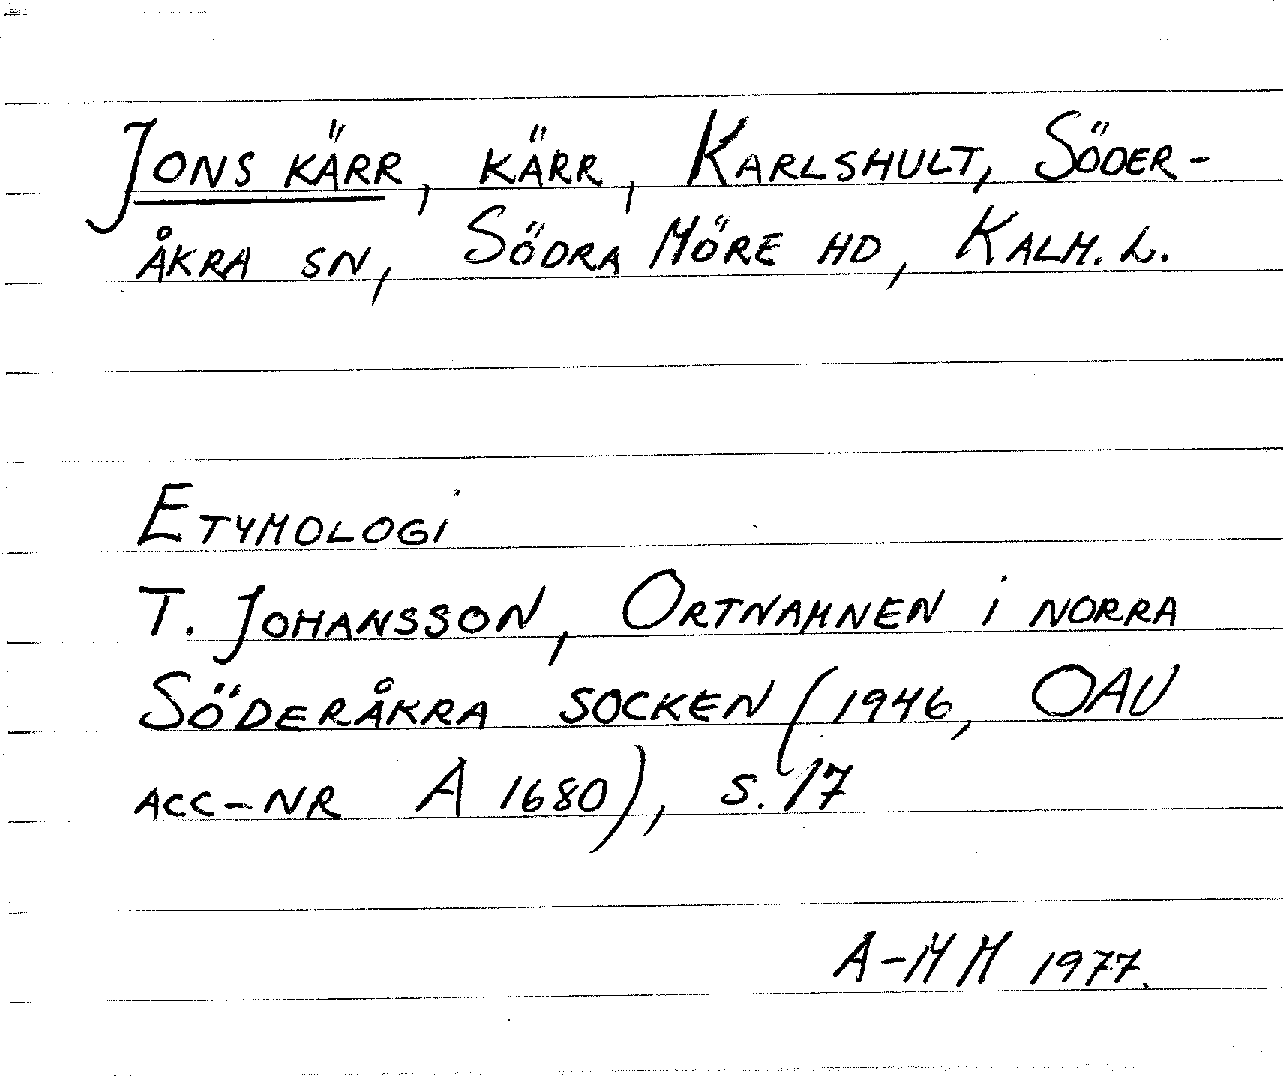 Jons kärr, kärr, Karlshult, Söder-
åkra sn, Södra Möre hd, Kalm. L.
Etymologi
T. Johansson, Ortnamnen i norra
Söderåkra socken (1946, OAU
acc-nr A 1680), s. 17
A-M M 1977.